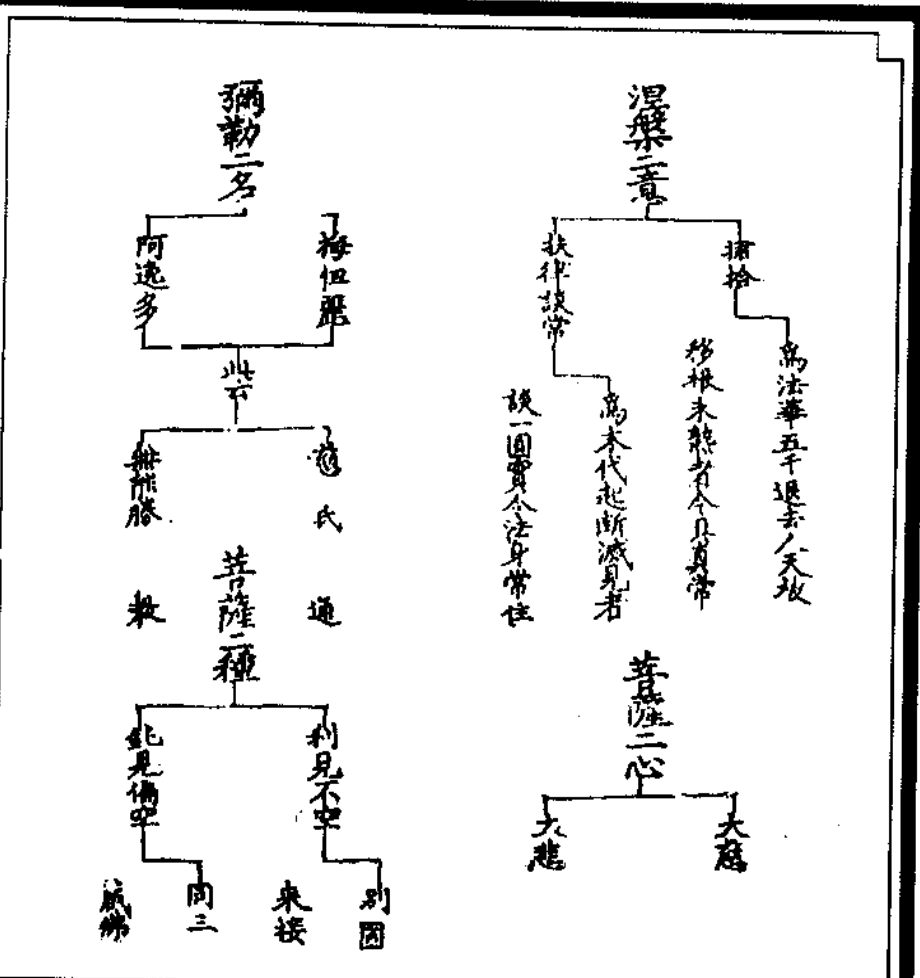 涅槃二意
捃拾
為法華五千退去人天被
移根未熟者令具真常
扶律談常
為末代起斷滅見者
談一圓實令法身常住
菩薩二心
大慈
大悲
彌勒二名
梅怛麗
阿逸多
此云
慈氏
無能勝
菩薩二種
通
教
利見不空
別圓
來接
鈍見偏空
同三
藏佛